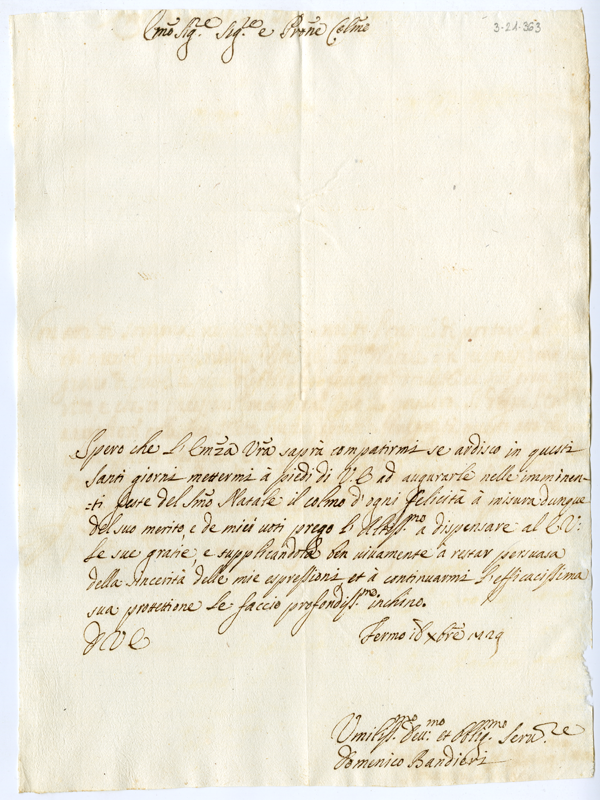 Emo Sig.re Sig.re e Prone Colmo
3-21-363
Spero che l'Emza Vra saprà compatirmi se ardisco in questi
santi giorni mettermi à piedi di V E ad augurarle nelle imminen-
-ti feste del Smo Natale il colmo d'ogni felicità à misura dunque
del suo merito, e de miei voti prego l'Altiss.mo à dispensare al E V:
le sue grazie, e supplicandola ben vivamente à restar persuasa
della sincerità delle mie espressioni, et à continuarmi l'efficacissima
sua protettione le faccio profondiss.mo inchino.
D V E
Fermo 18 Xbre 1729
Umiliss.mo Dev.mo et Oblig.mo Serv.re
Domenico Bandieri